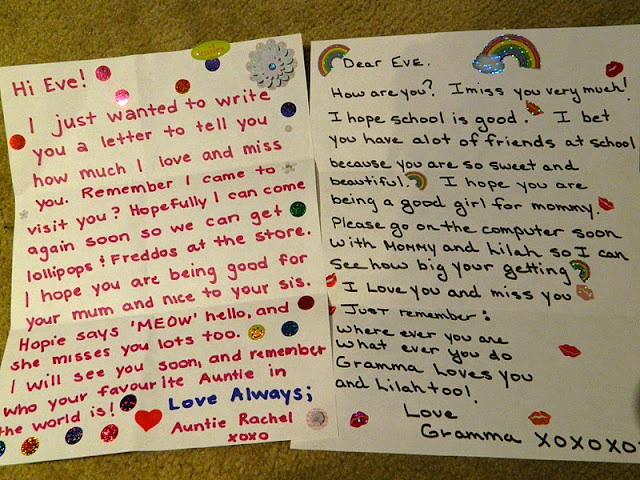 Hi Eve!
I just wanted to write
you a letter to tell you
how much I love and miss
you. Remember I came to
visit you? Hopefully I can come
again soon so we can get
lollipops & Freddos at the store.
I hope you are being good for
your mum and nice to your sis.
Hopie says 'MEOW' hello, and
she misses you lots too.
I will see you soon, and remember
who your favourite Auntie in
the world is!
Love Always;
Auntie Rachel
xoxo
Dear Eve.
How are you? I miss you very much!
I hope school is good. I bet
you have alot of friends at school
because you are so sweet and
beautiful. I hope you are
being a good girl for mommy.
Please go on the computer soon
with Mommy and hilah so I can
see how big your getting
I Love you and miss you
Just remember:
where ever you are
what ever you do
Gramma Loves you
and hilah too!
Love
Gramma XOXOXO